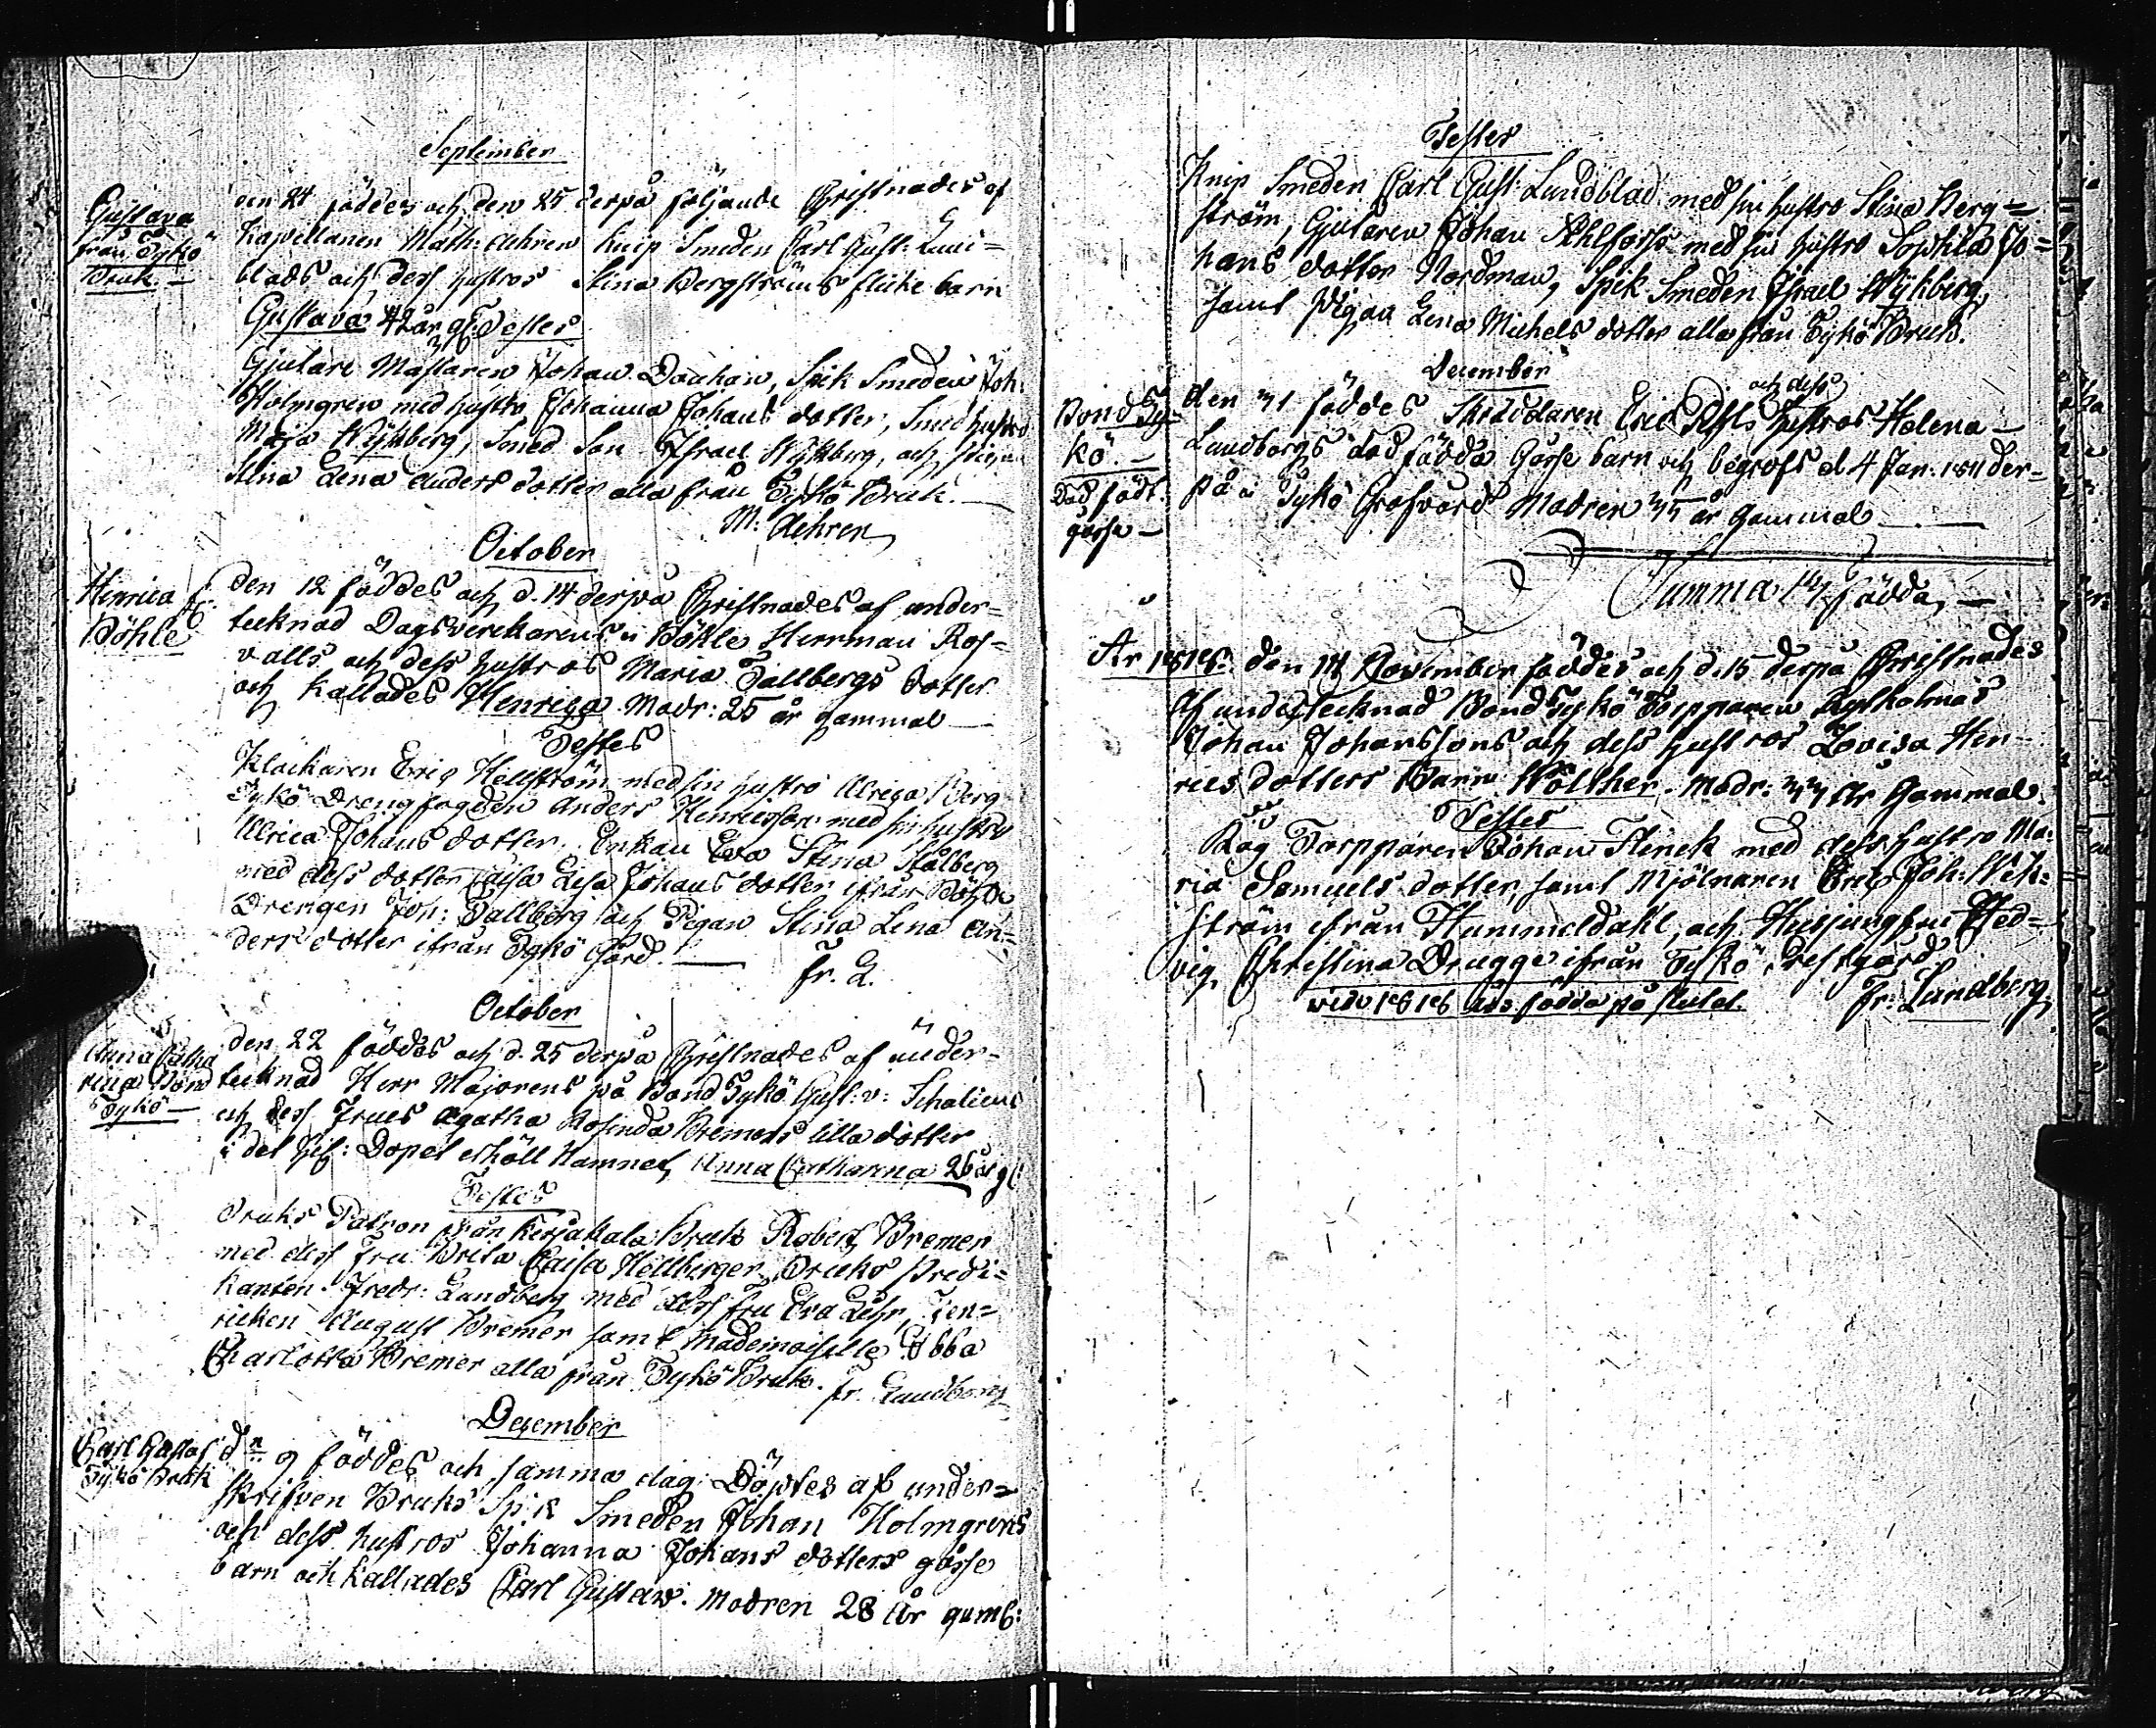 September
Gustava
från Tykö
Bruk. —
den 24 föddes och den 25 derpå följande Christnades af
Kapellanen Math: Aehren Knip Smeden Carl Gust: Lund=
blads och dess hustros Stina Bergströms flicke barn
Gustava 42 år gl. Testes
Gjutare Mästaren Johan Dauhan, Spik Smeden Joh:
Holmgren med hustro Johanna Johans dotter, Smed hustro
Maja Nykberg, Smed Son Israel Nykberg, och pigan
Stina Lena Anders dotter alla från Tykö Bruk. —
M: Aehren
October
Henrica f.
Böhle
den 12 föddes och d. 14 derpå Christnades af under=
tecknad Dagsverckarens i Böhle Herrman Ros=
valls och dess hustros Maria Tallbergs dotter
och kallades Henrica. Modr: 25 år gammal —
Testes
Klåckaren Eric Hellström med sin hustro Ulrica Berg
Tykö Drengfogden Anders Henricsson med sin hustro
Ulrica Johans dotter. Enkan Eva Stina Stålberg
med dess dotter Caisa Lisa Johans dotter ifrån Böhle
Drengen Joh: Tallberg och Pigan Stina Lena An=
ders dotter ifrån Tykö Gård. — Fr. L.
October
Anna Catha
rina Bond
Tykö —
den 22 föddes och d. 25 derpå Christnades af under=
tecknad Herr Majorens på Bond Tykö Gust: v: Schaliens
och dess Frues Agatha Rosinda Bremers lilla dotter
i det hel: Dopet erhöll Namnet, Anna Catharina 26 år gl
Testes
Bruks Patron från Kirjakala Bruk Robert Bremer
med dess Fru Brita Caisa Hellberger, Bruks Predi=
kanten Fredr: Lundberg med dess fru Eva Lihr, Fen=
ricken August Bremer samt Mademoiselle Ebba
Charlotta Bremer alla från Tykö Bruk. Fr. Lundberg
December
Carl Gustaf
Tykö Bruk
dn 9 föddes och samma dag Döptes af under=
skrifven Bruks Spik Smeden Johan Holmgrens
och dess hustros Johanna Johans dotters gosse
barn och kallades Carl Gustav. Modren 28 År gaml:
Testes
Knip Smeden Carl Gust: Lundblad med sin hustro Stina Berg=
ström, Gjutaren Johan Ahlforss med sin hustro Sophia Jo=
hans dotter Nordman, Spik Smeden Israel Nykberg,
samt Pigan Lena Michels dotter alla från Tykö Bruk.
December
Bond Ty=
kö. —
Död född
gosse —
och dess
den 31 föddes Skräddaren Eric hustros Helena —
Lundborgs död födda Gosse barn och begrofs d. 4 Jan. 1811 der=
på i Tykö Grafvård Modren 35 år gammal —
Summa 14 födda, —
År 1818. den 14 November föddes och d. 15 derpå Christnades
af undertecknad Bond Tykö Torpparen Rylholmas
Johan Johanssons och dess hustros Lovisa Hen=
rics dotters Barn Wolther. Modr: 33 År Gammal.
Testes
Råg Torpparen Johan Flinck med dess hustro Ma=
ria Samuels dotter, samt Mjölnaren Eric Joh: Wek=
ström ifrån Hummeldahl, och Husjungfru Hed=
vig Christina Drugge ifrån Tykö Prestgård
vide 1818 års födda på slutet. Fr: Lundberg